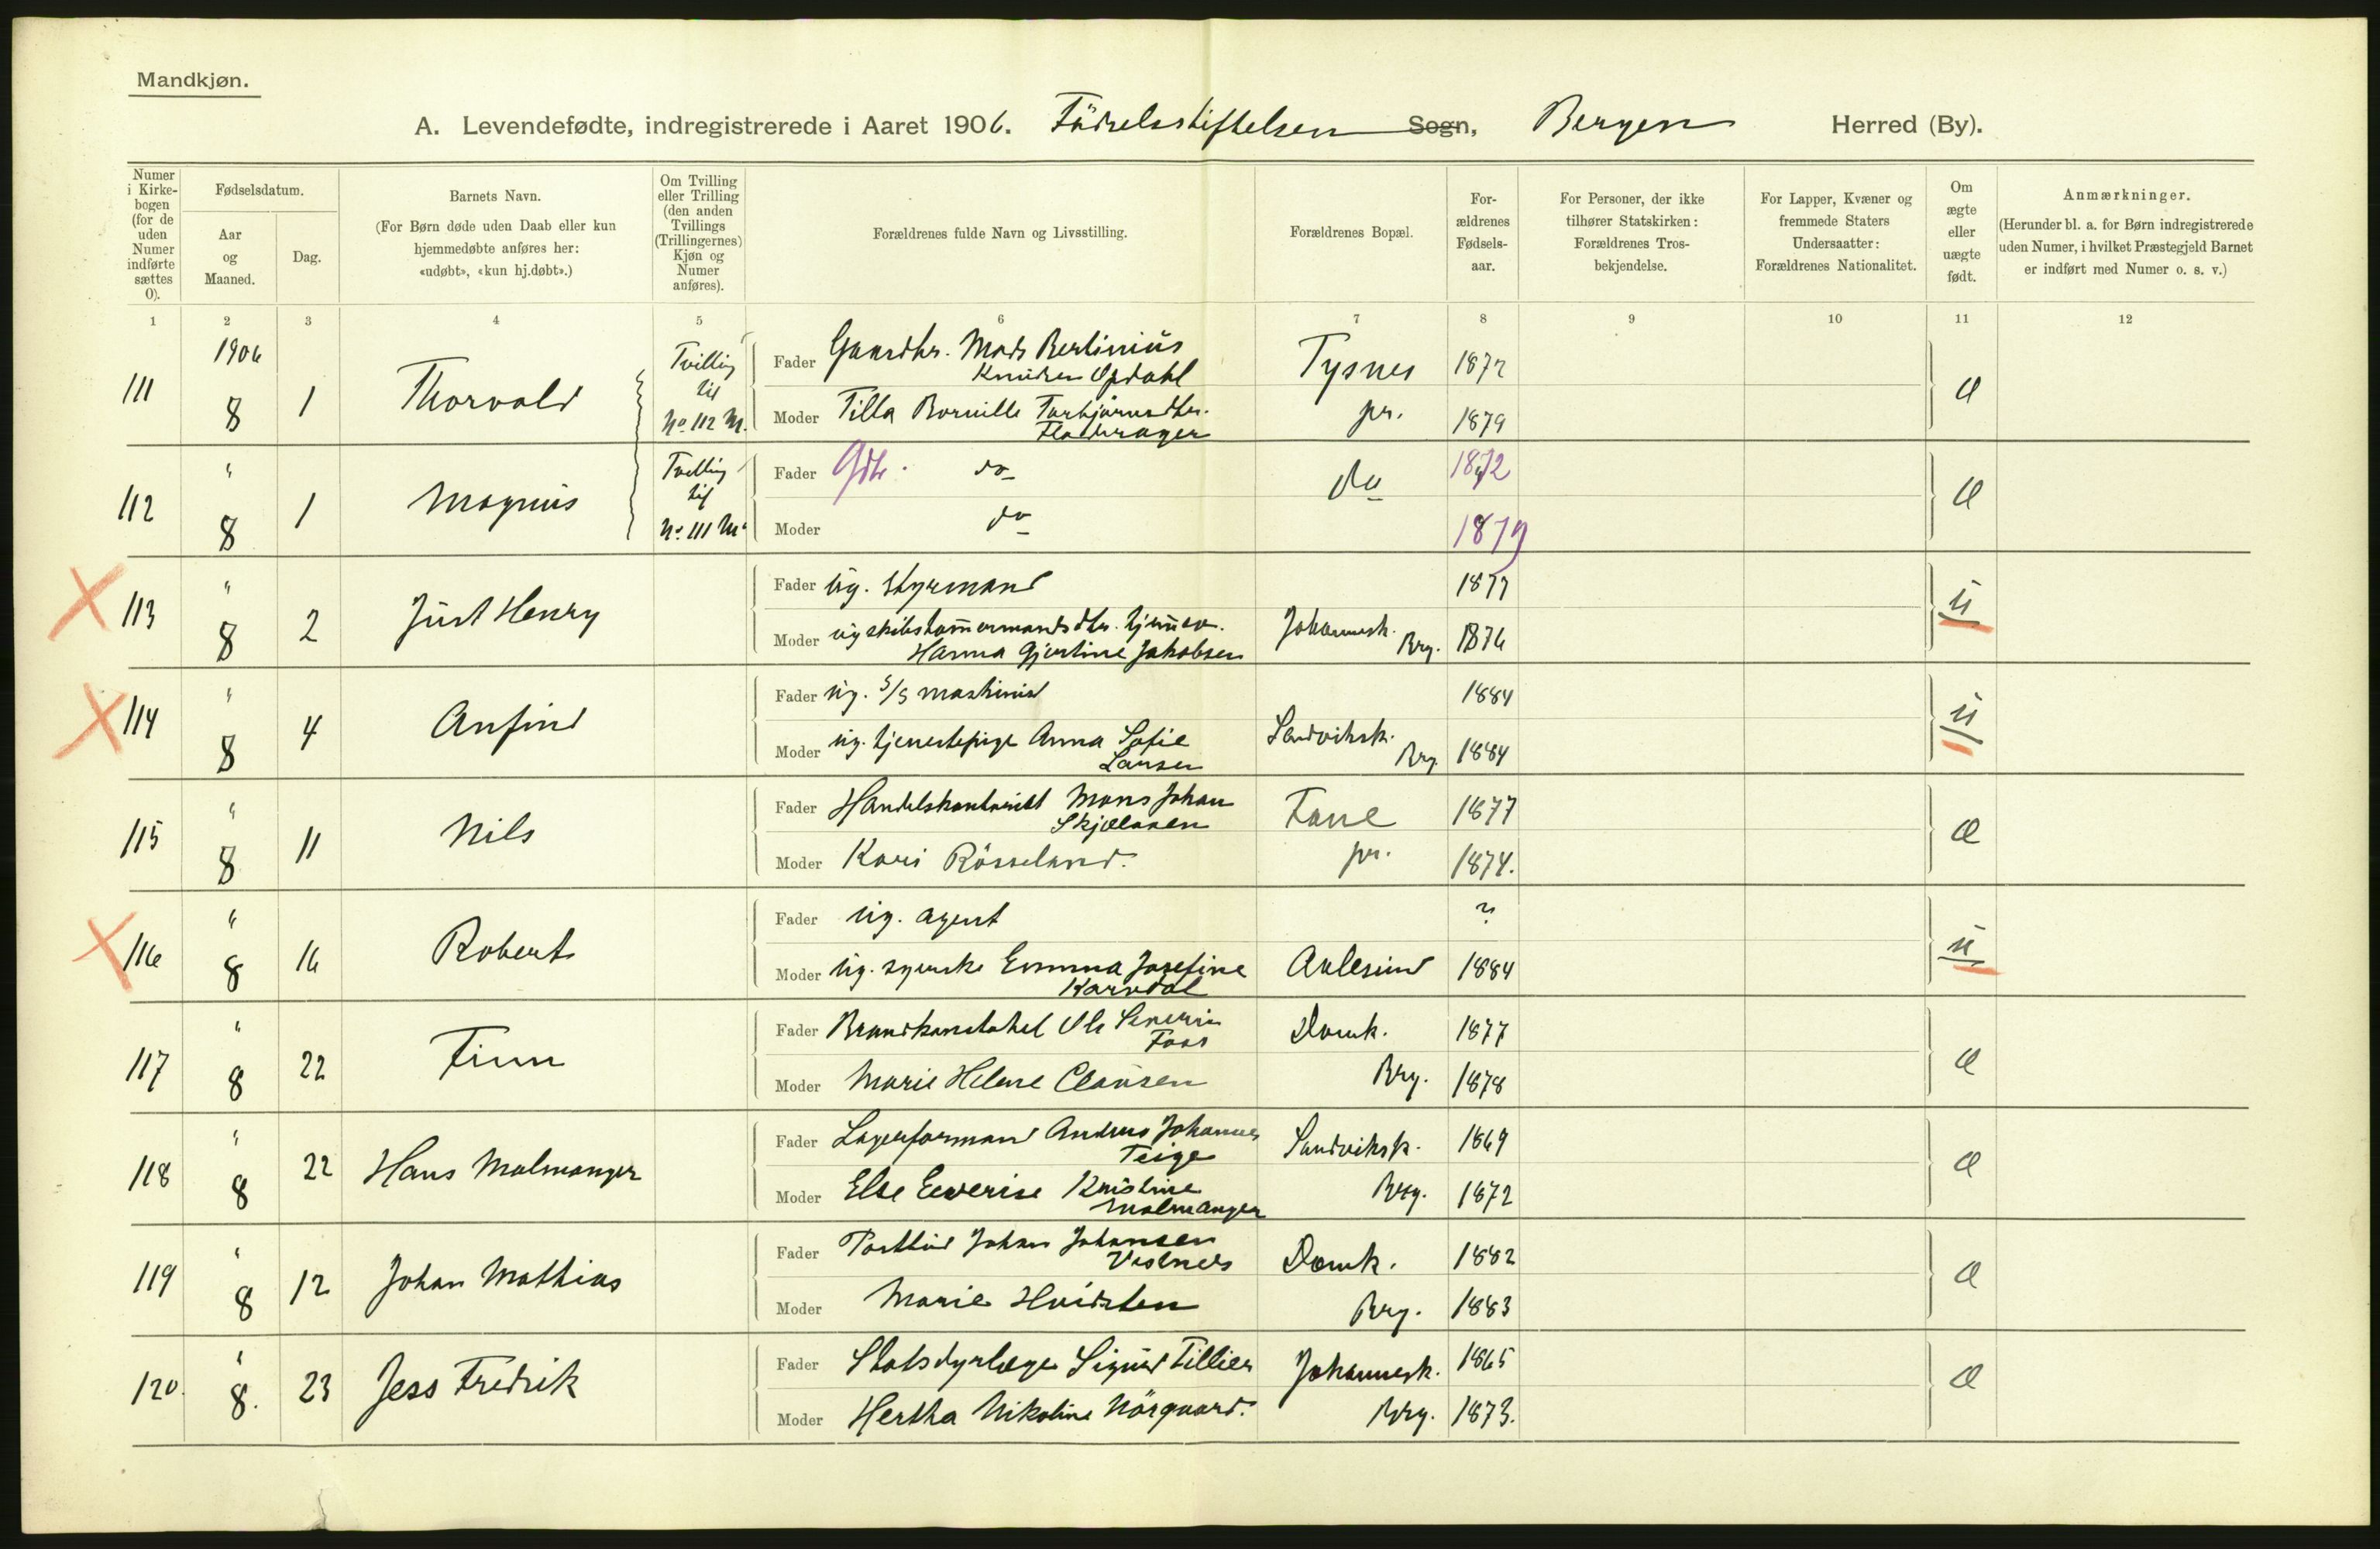 Mandkjøn.
A. Levendefødte, indregistrerede i Aaret 1906. Födselsstiftelsen Sogn, Bergen Herred (By).
Numer i Kirke-bogen (for de uden Numer indførte sættes 0).
Fødselsdatum.
Aar og Maaned.
Dag.
Barnets Navn.
(For Børn døde uden Daab eller kun hjemmedøbte anføres her: «udøbt», «kun hj.døbt».)
Om Tvilling eller Trilling (den anden Tvillings (Trillingernes) Kjøn og Numer anføres).
Forældrenes fulde Navn og Livsstilling.
Forældrenes Bopæl.
For-ældrenes Fødsels-aar.
For Personer, der ikke tilhører Statskirken: Forældrenes Tros-bekjendelse.
For Lapper, Kvæner og fremmede Staters Undersaatter: Forældrenes Nationalitet.
Om ægte eller uægte født.
Anmærkninger.
(Herunder bl. a. for Børn indregistrerede uden Numer, i hvilket Præstegjeld Barnet er indført med Numer o. s. v.)
1 2 3 4 5 6 7 8 9 10 11 12
111 1906 8 1 Thorvald Tvilling til No 112 M.
Fader Gaardbr. Mads Bertinius Knudsen Opdahl Tysnes 1872 æ
Moder Tilla Bornille Torbjörnsdtr. Fladerager pr. 1879
112 " 8 1 Magnus Tvilling til No 111 M.
Fader Gdbr. do do 1872 æ
Moder do 1879
113 " 8 2 Just Henry
Fader ug. Styrmand 1877 u
Moder ug skibstømmermandsdtr. hjemmev. Hanna Gjertine Jakobsen Johannesk. Brg. 1876
114 " 8 4 Anfind
Fader ug. S/S maskinist 1884 u
Moder ug. tjenestepige Anna Sofie Larsen Sandviksk. Brg. 1884
115 " 8 11 Nils
Fader Handelskontorist Mons Johan Skjælaaen Fane 1877 æ
Moder Kari Rösseland. pr. 1874.
116 " 8 16 Robert
Fader ug. agent ? u
Moder ug. syerske Emma Josefine Karvdal Aalesund 1884
117 " 8 22 Finn
Fader Brandkonstabel Ole Severin Foss Domk. 1877 æ
Moder Marie Helene Clausen Brg. 1878
118 " 8 22 Hans Malmanger
Fader Lagerformand Andreas Johannes Teige Sandviksk. 1869 æ
Moder Else Severine Kristine Malmanger Brg. 1872
119 " 8 12 Johan Mathias
Fader Postbud Johan Johansen Vestnes Domk. 1882 æ
Moder Marie Hvidsten Brg. 1883
120. " 8. 23 Jess Fredrik
Fader Statsdyrlæge Sigurd Tillier Johannesk. 1865 æ
Moder Hertha Nikoline Nörgaard. Brg. 1873.